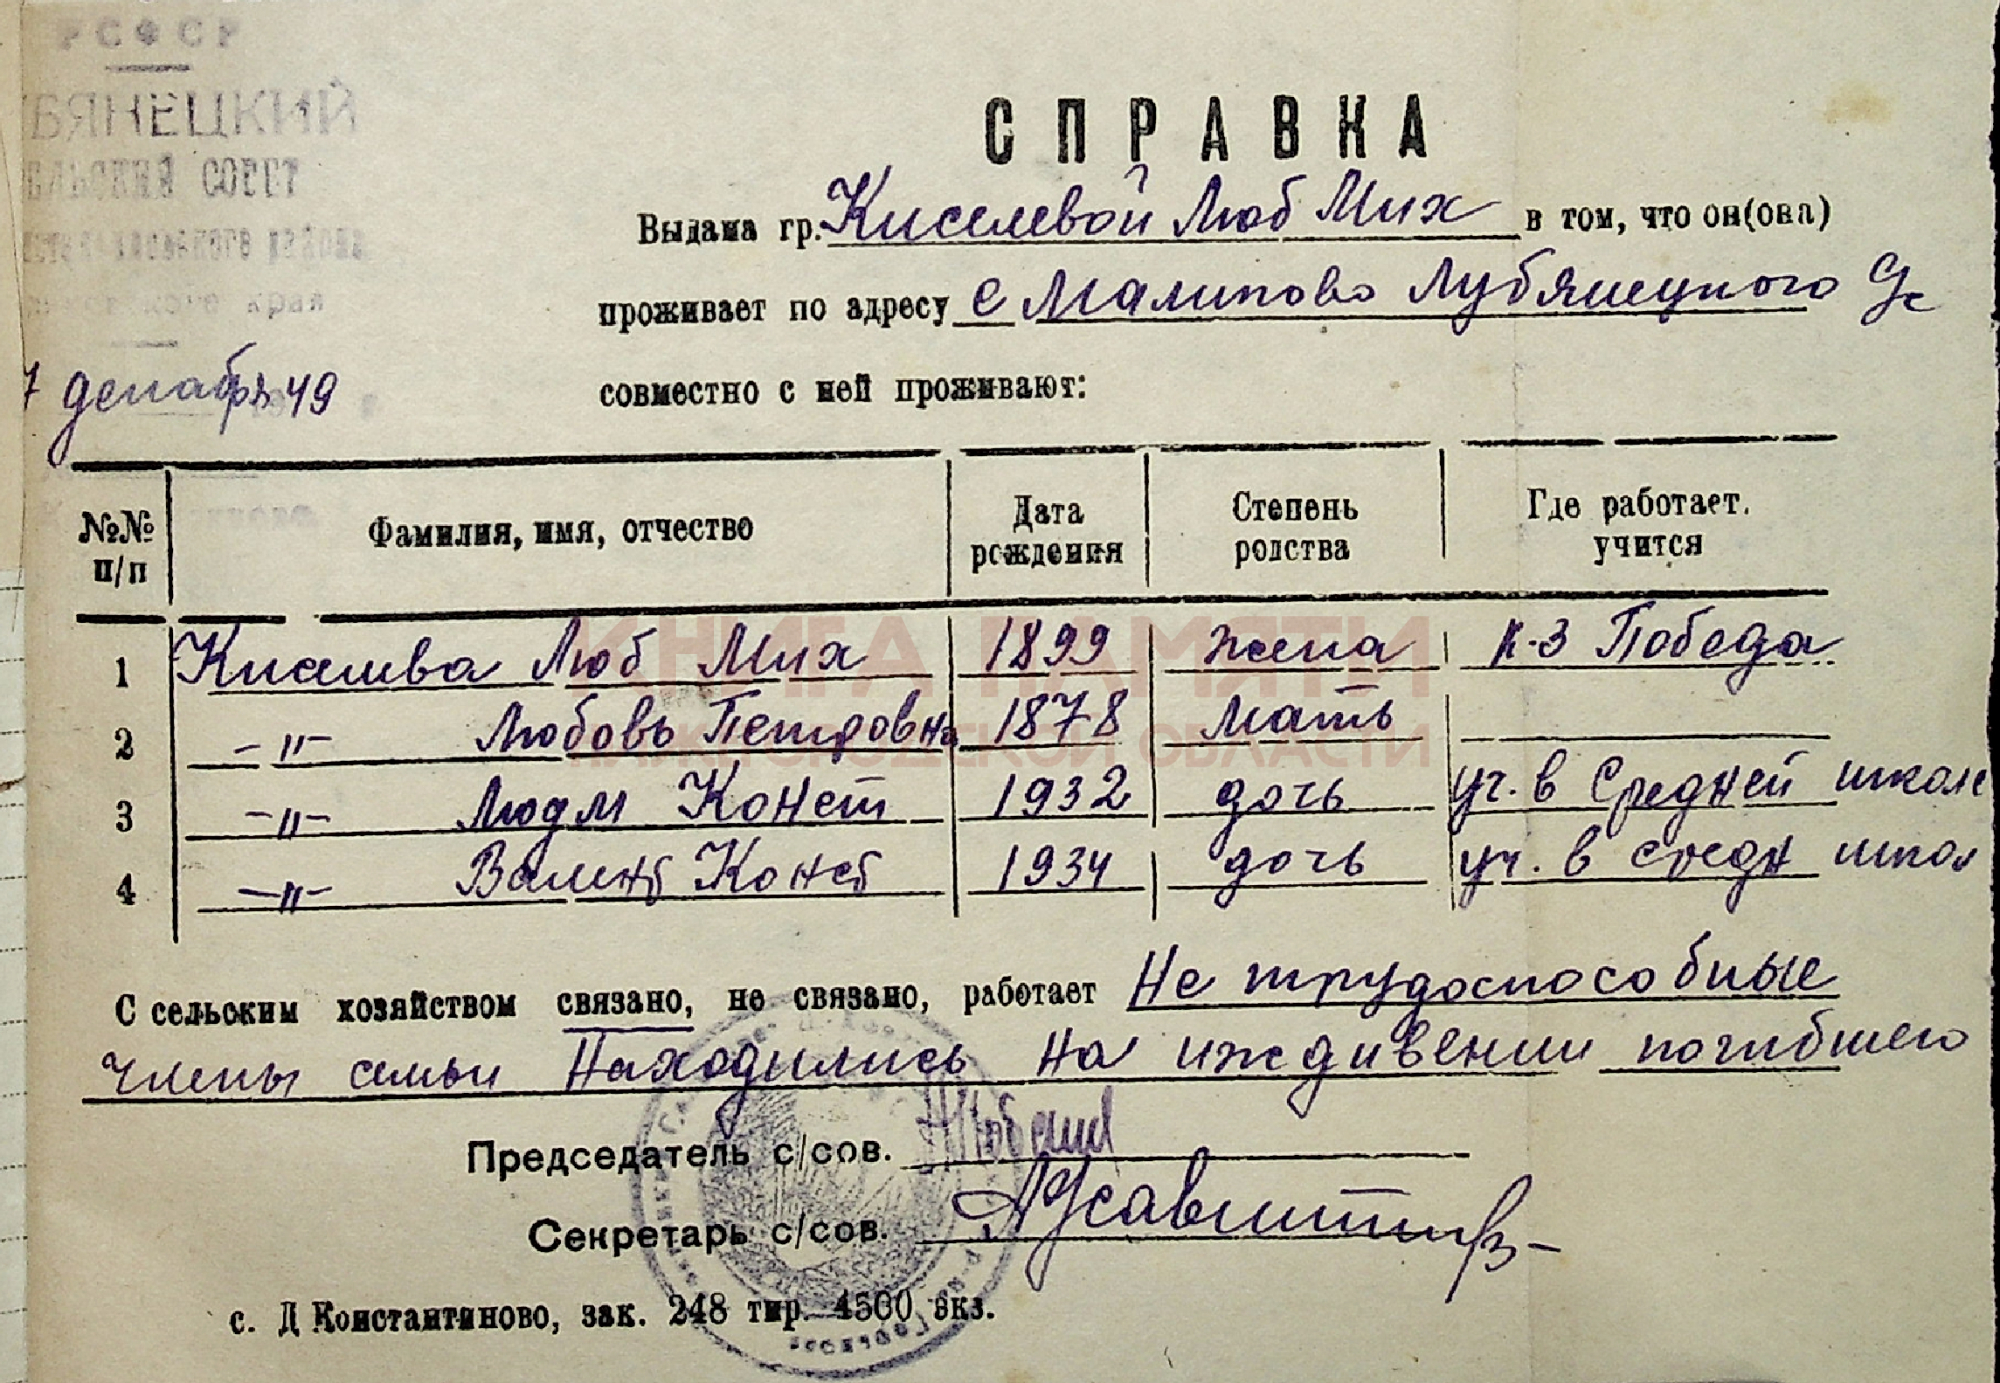 РСФСР
БЯНЕЦКИЙ
ЕЛЬСКИЙ СОВЕТ
района
края
7 декабря 49
СПРАВКА
Выдана гр. Киселевой Люб Мих в том, что он(она)
проживает по адресу с Малипово Лубянецкого с/с
совместно с ней проживают:
№№ п/п Фамилия, имя, отчество Дата рождения Степень родства Где работает. учится
1 Киселева Люб Мих 1899 жена к-з Победа
2 -"- Любовь Петровна 1878 мать
3 -"- Людм Конст 1932 дочь уч. в Средней школе
4 -"- Валент Конст 1934 дочь уч. в средн школ
С сельским хозяйством связано, не связано, работает Не трудоспособные
члены семьи Находились на иждивении погибшего
Председатель с/сов.
Секретарь с/сов.
с. Д Константиново, зак. 248 тир. 4500 экз.
КНИГА ПАМЯТИ
НИЖЕГОРОДСКОЙ ОБЛАСТИ